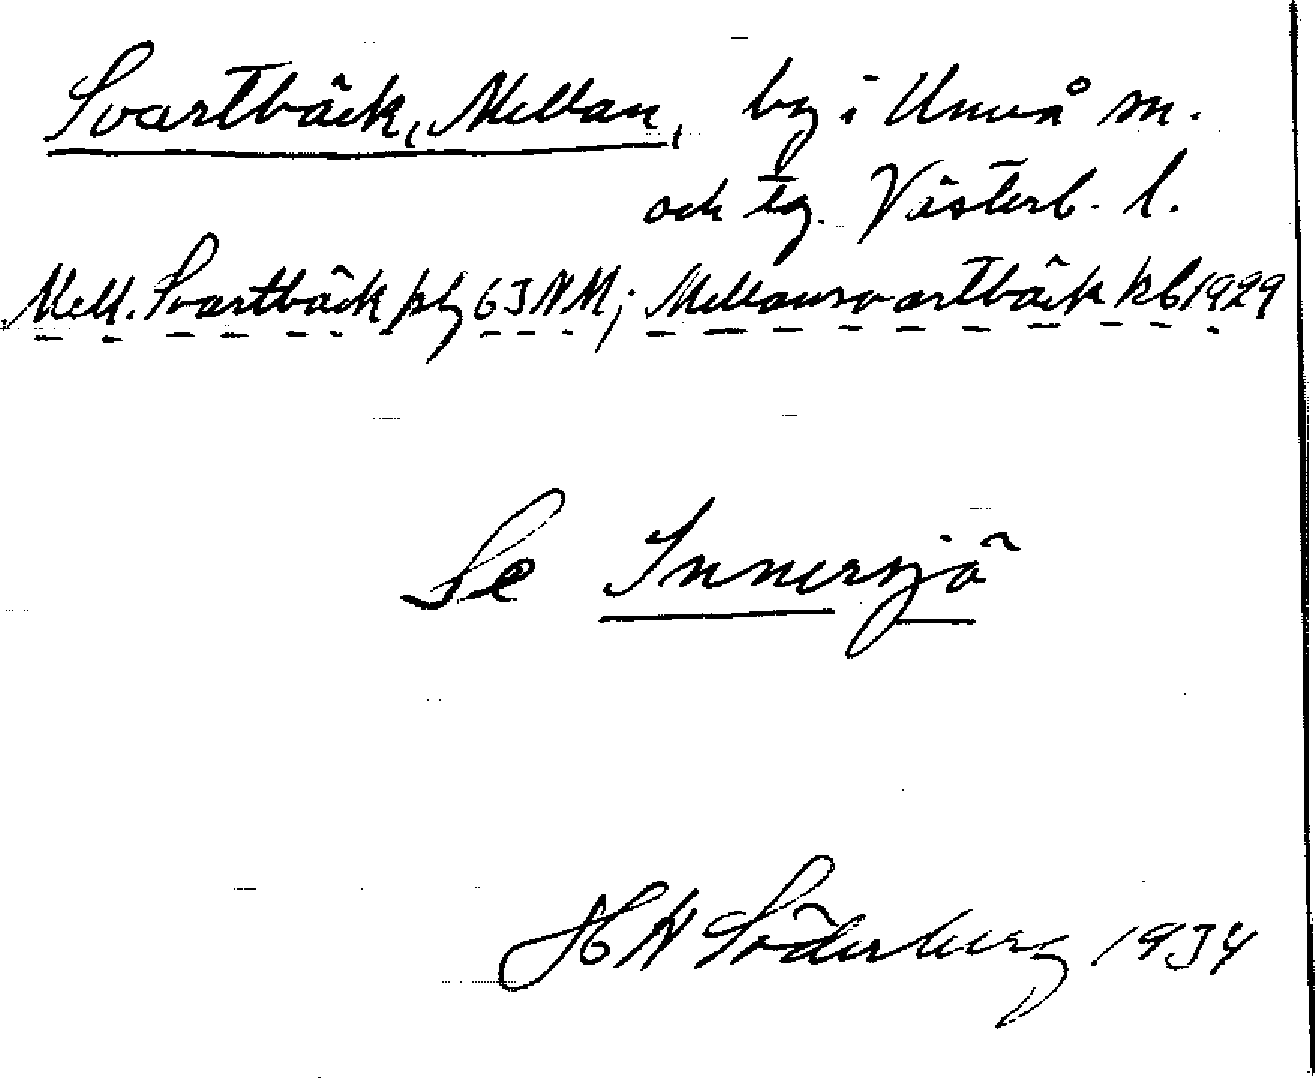 Svartbäck, Mellan, by i Umeå sn.
och tg. Västerb. l.
Mell. Svartbäck pbg 63 NM; Mellansvartbäck kb 1929
Se Innersjö
H N Söderberg 1934